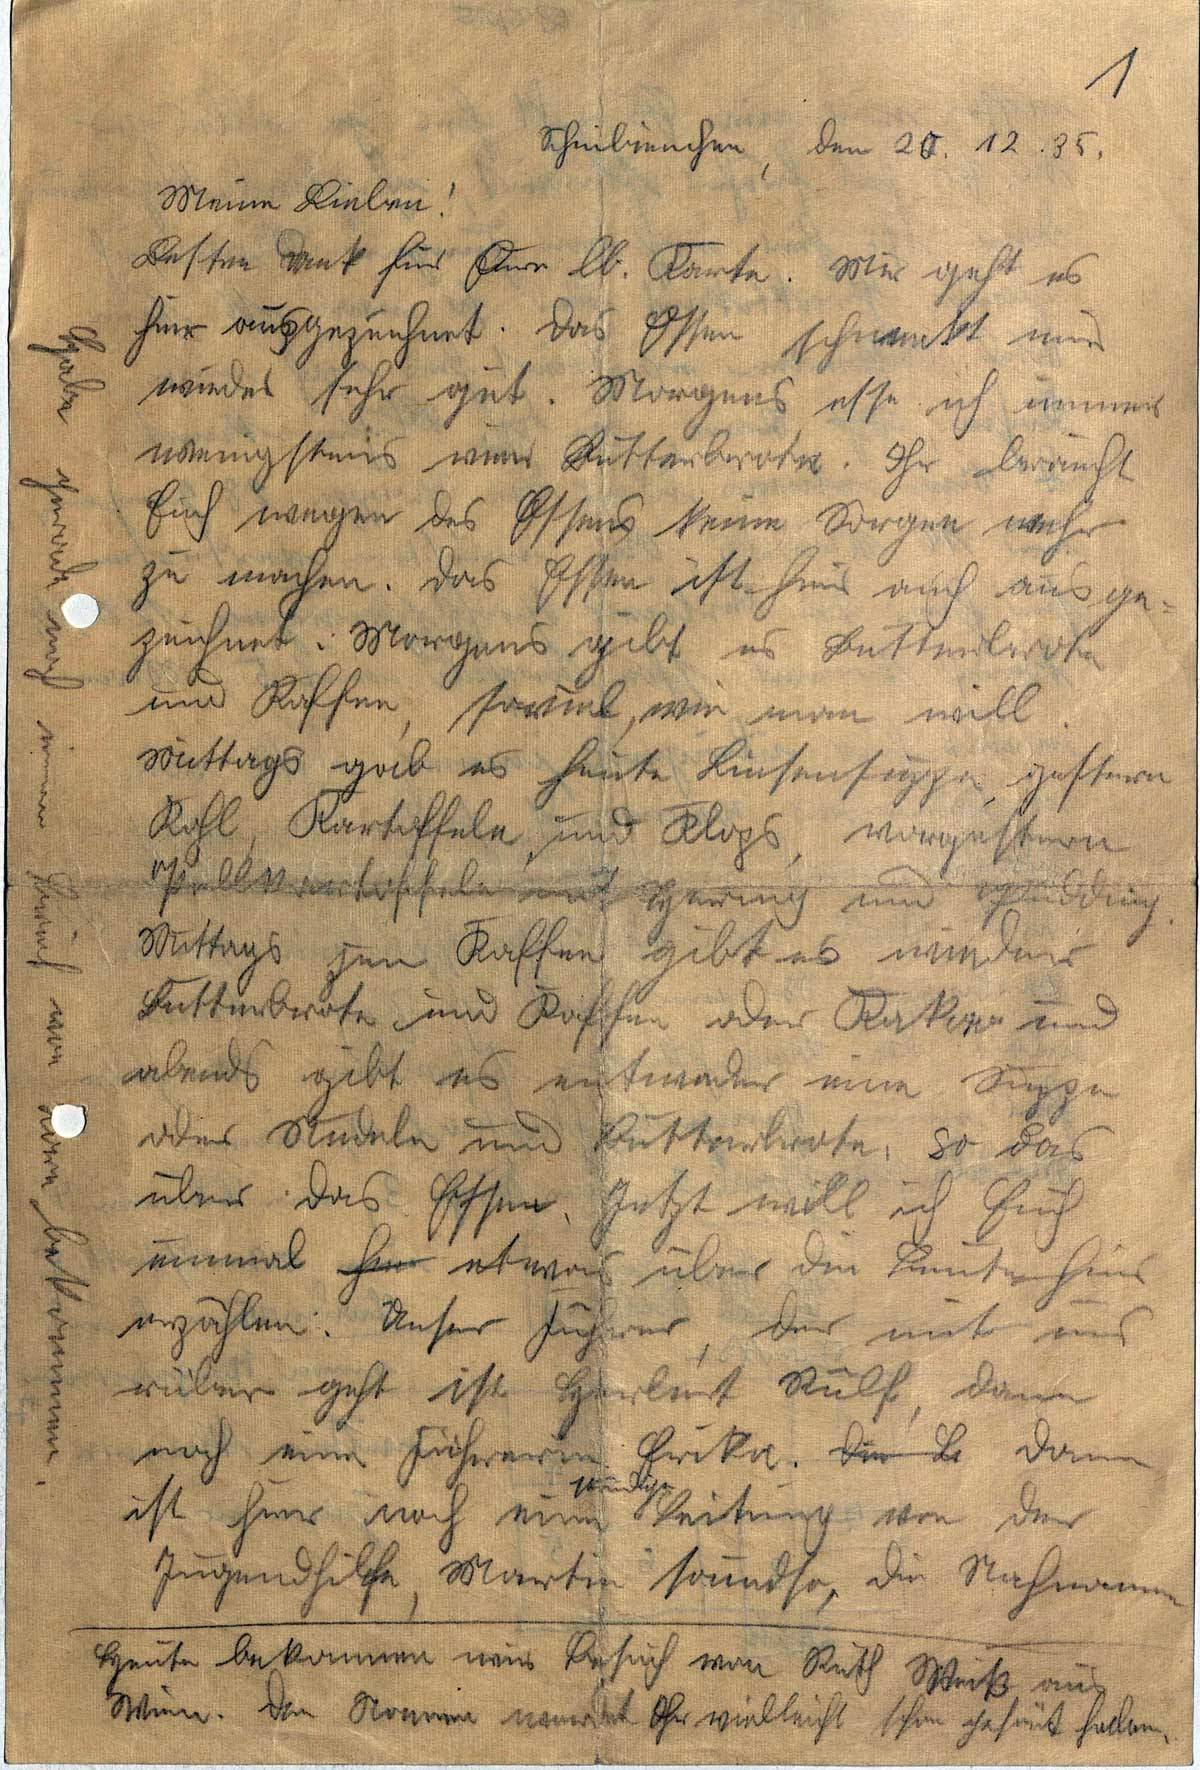 1
Schniebienchen, den 20. 12. 35.
Meine Lieben!
Besten Dank für Eure lb. Karte. Mir geht es
hier ausgezeichnet. Das Essen schmeckt mir
wieder sehr gut. Morgens esse ich immer
wenigstens vier Butterbrote. Ihr braucht
Euch wegen des Essens keine Sorgen mehr
zu machen. Das Essen ist hier auch ausge-
zeichnet. Morgens gibt es Butterbrote
und Kaffee, soviel, wie man will.
Mittags gab es heute Linsensuppe, gestern
Kohl, Kartoffeln, und Klops, vorgestern
Pellkartoffeln mit Hering und Pudding.
Mittags zum Kaffee gibt es wieder
Butterbrote und Kaffee oder Kakao und
abends gibt es entweder eine Suppe
oder Nudeln und Butterbrote. So das
über das Essen. Jetzt will ich Euch
einmal hier etwas über die Leute hier
erzählen. Unser Führer, der mit uns
rüber geht ist Herbert Rülf, dann
noch eine Führerin Erika. Die L dann
ist hier noch eine ständige Leitung von der
Jugendhilfe, Martin soundso, die Nachnamen
Heute bekommen wir Besuch von Ruth Weiß aus
Wien. Den Namen werdet Ihr vielleicht schon gehört haben.
Habe gerade noch einen Brief von bekommen.